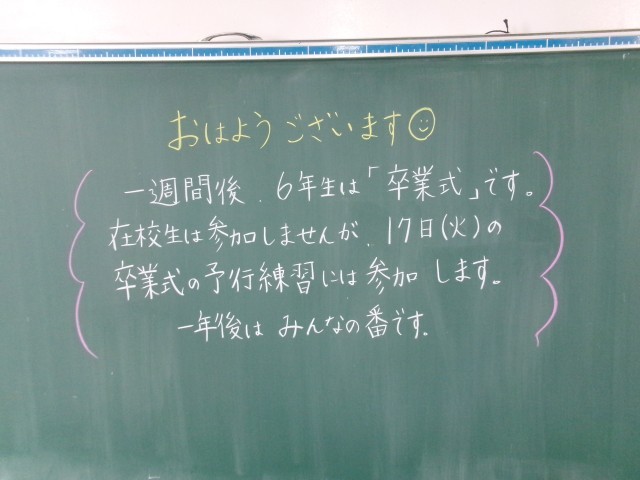 おはようございます☺
一週間後、6年生は「卒業式」です。
在校生は参加しませんが、17日(火)の
卒業式の予行練習には参加します。
一年後はみんなの番です。